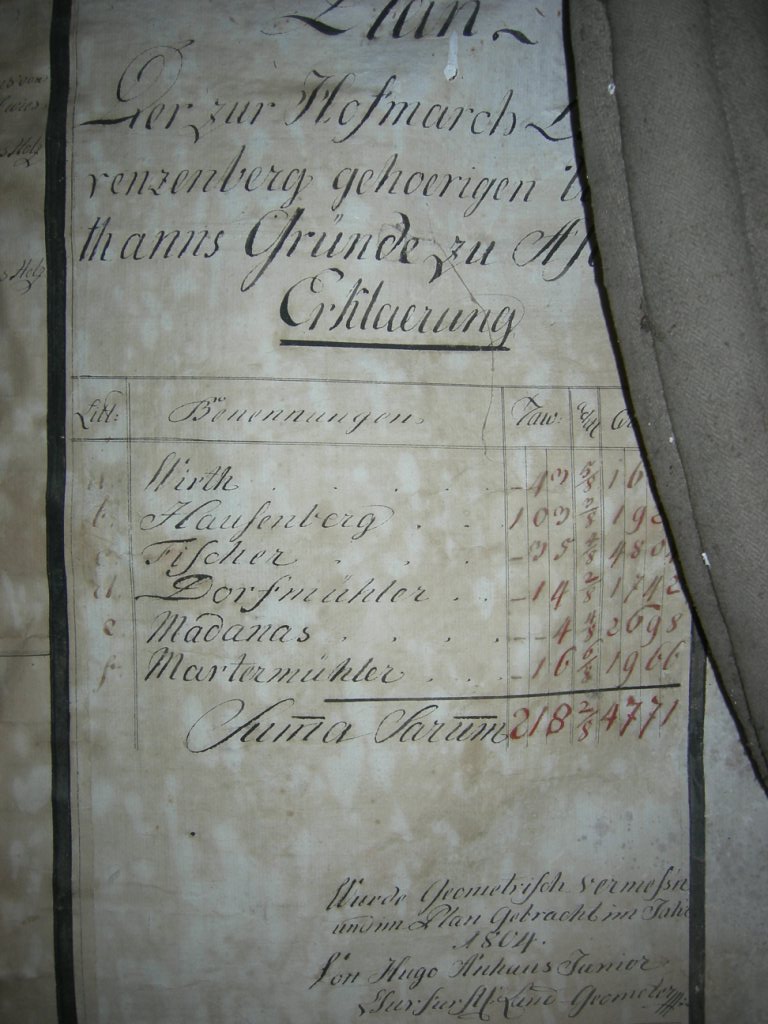 Plan
Der zur Hofmarch
renzenberg gehoerigen
thanns Gründe zu
Erklaerung
Litt: Benennungen Taw:
a. Wirth . . . . - 43 5/8 16
b. Hausenberg . . 103 3/8 192
c. Fischer . . . - 35 4/8 480
d. Dorfmühler . . - 14 2/8 1742
e. Madanas . . . . - - 4 4/8 2698
f. Martermühler . . . - 16 6/8 1966
Sum̄a Sarum̄ 218 2/8 4771
Wurde Geometrisch vermeßn
und im Plan gebracht im Jahr
1804.
Von Hugo Junior
Churfurstl: Geometer